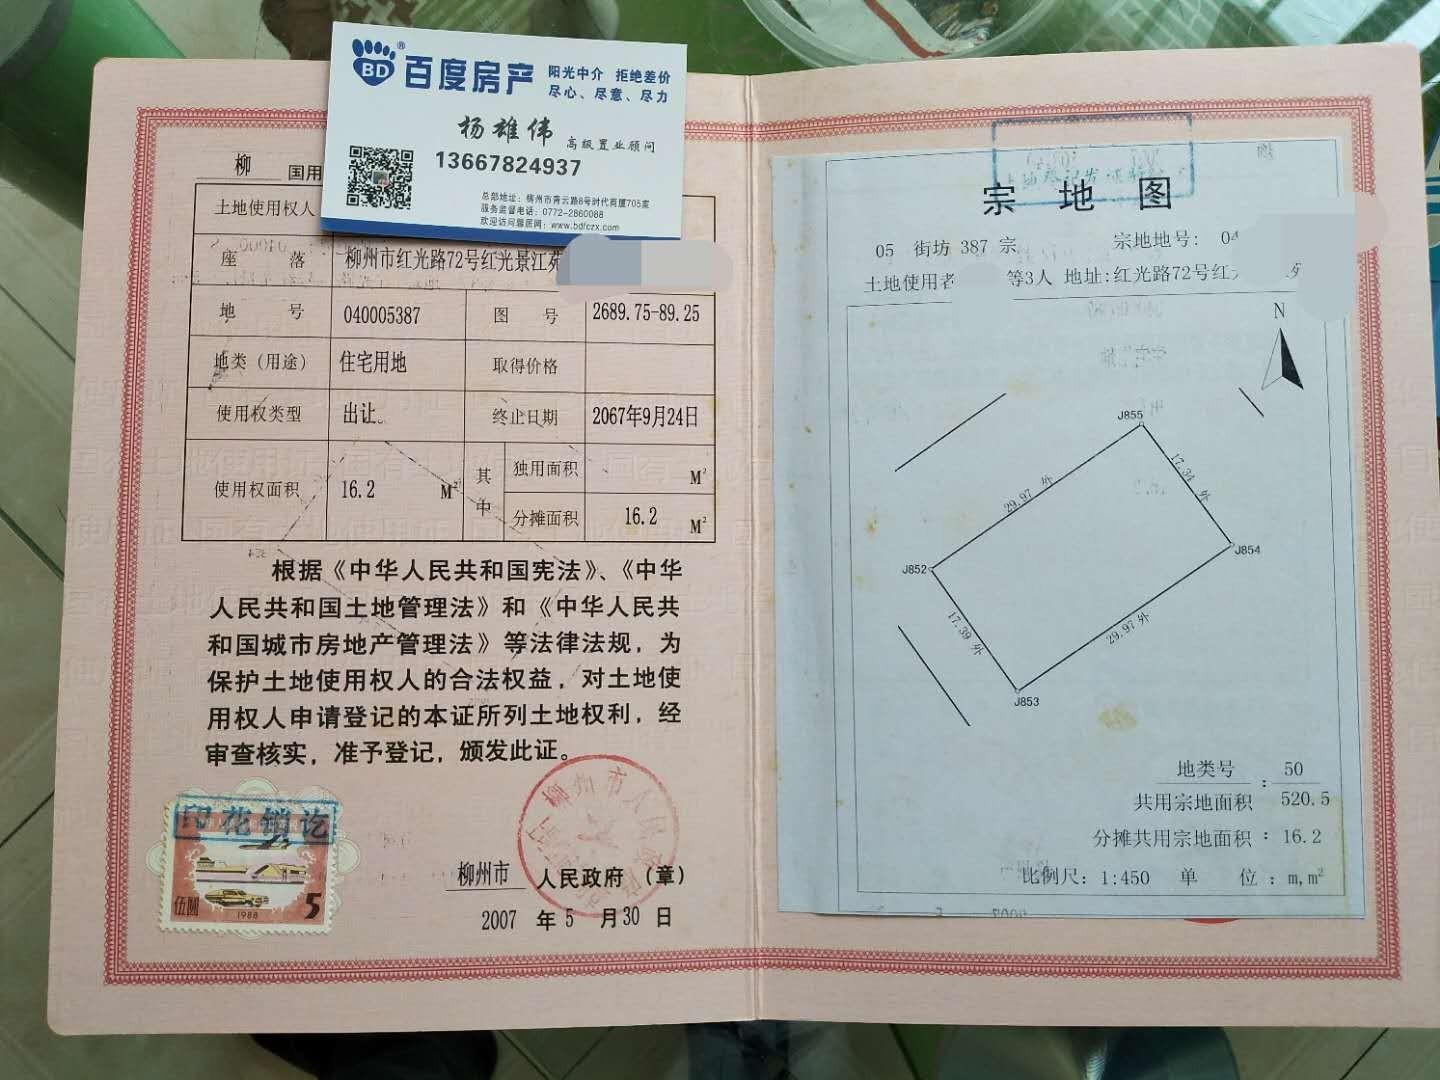 BD
百度房产
阳光中介 拒绝差价
尽心、尽意、尽力
杨雄伟 高级置业顾问
13667824937
总部地址：柳州市青云路8号时代商厦705室
服务监督电话：0772-2860088
欢迎访问器居网：www.bdfczx.com
柳 国用
土地使用权人
座落 柳州市红光路72号红光景江苑
地号 040005387 图号 2689.75-89.25
地类（用途） 住宅用地 取得价格
使用权类型 出让 终止日期 2067年9月24日
使用权面积 16.2 M² 其中 独用面积 M²
分摊面积 16.2 M²
根据《中华人民共和国宪法》、《中华
人民共和国土地管理法》和《中华人民共
和国城市房地产管理法》等法律法规，为
保护土地使用权人的合法权益，对土地使
用权人申请登记的本证所列土地权利，经
审查核实，准予登记，颁发此证。
印花销讫
伍圆 1988 5
柳州市 人民政府（章）
2007 年 5 月 30 日
宗地图
05 街坊 387 宗 宗地地号: 04
土地使用者 等3人 地址:红光路72号红
N
J855
17.34 外
29.97 外
J854
J852
17.39 外
29.97 外
J853
地类号 : 50
共用宗地面积 520.5
分摊共用宗地面积 : 16.2
比例尺: 1:450 单位 : m,m²